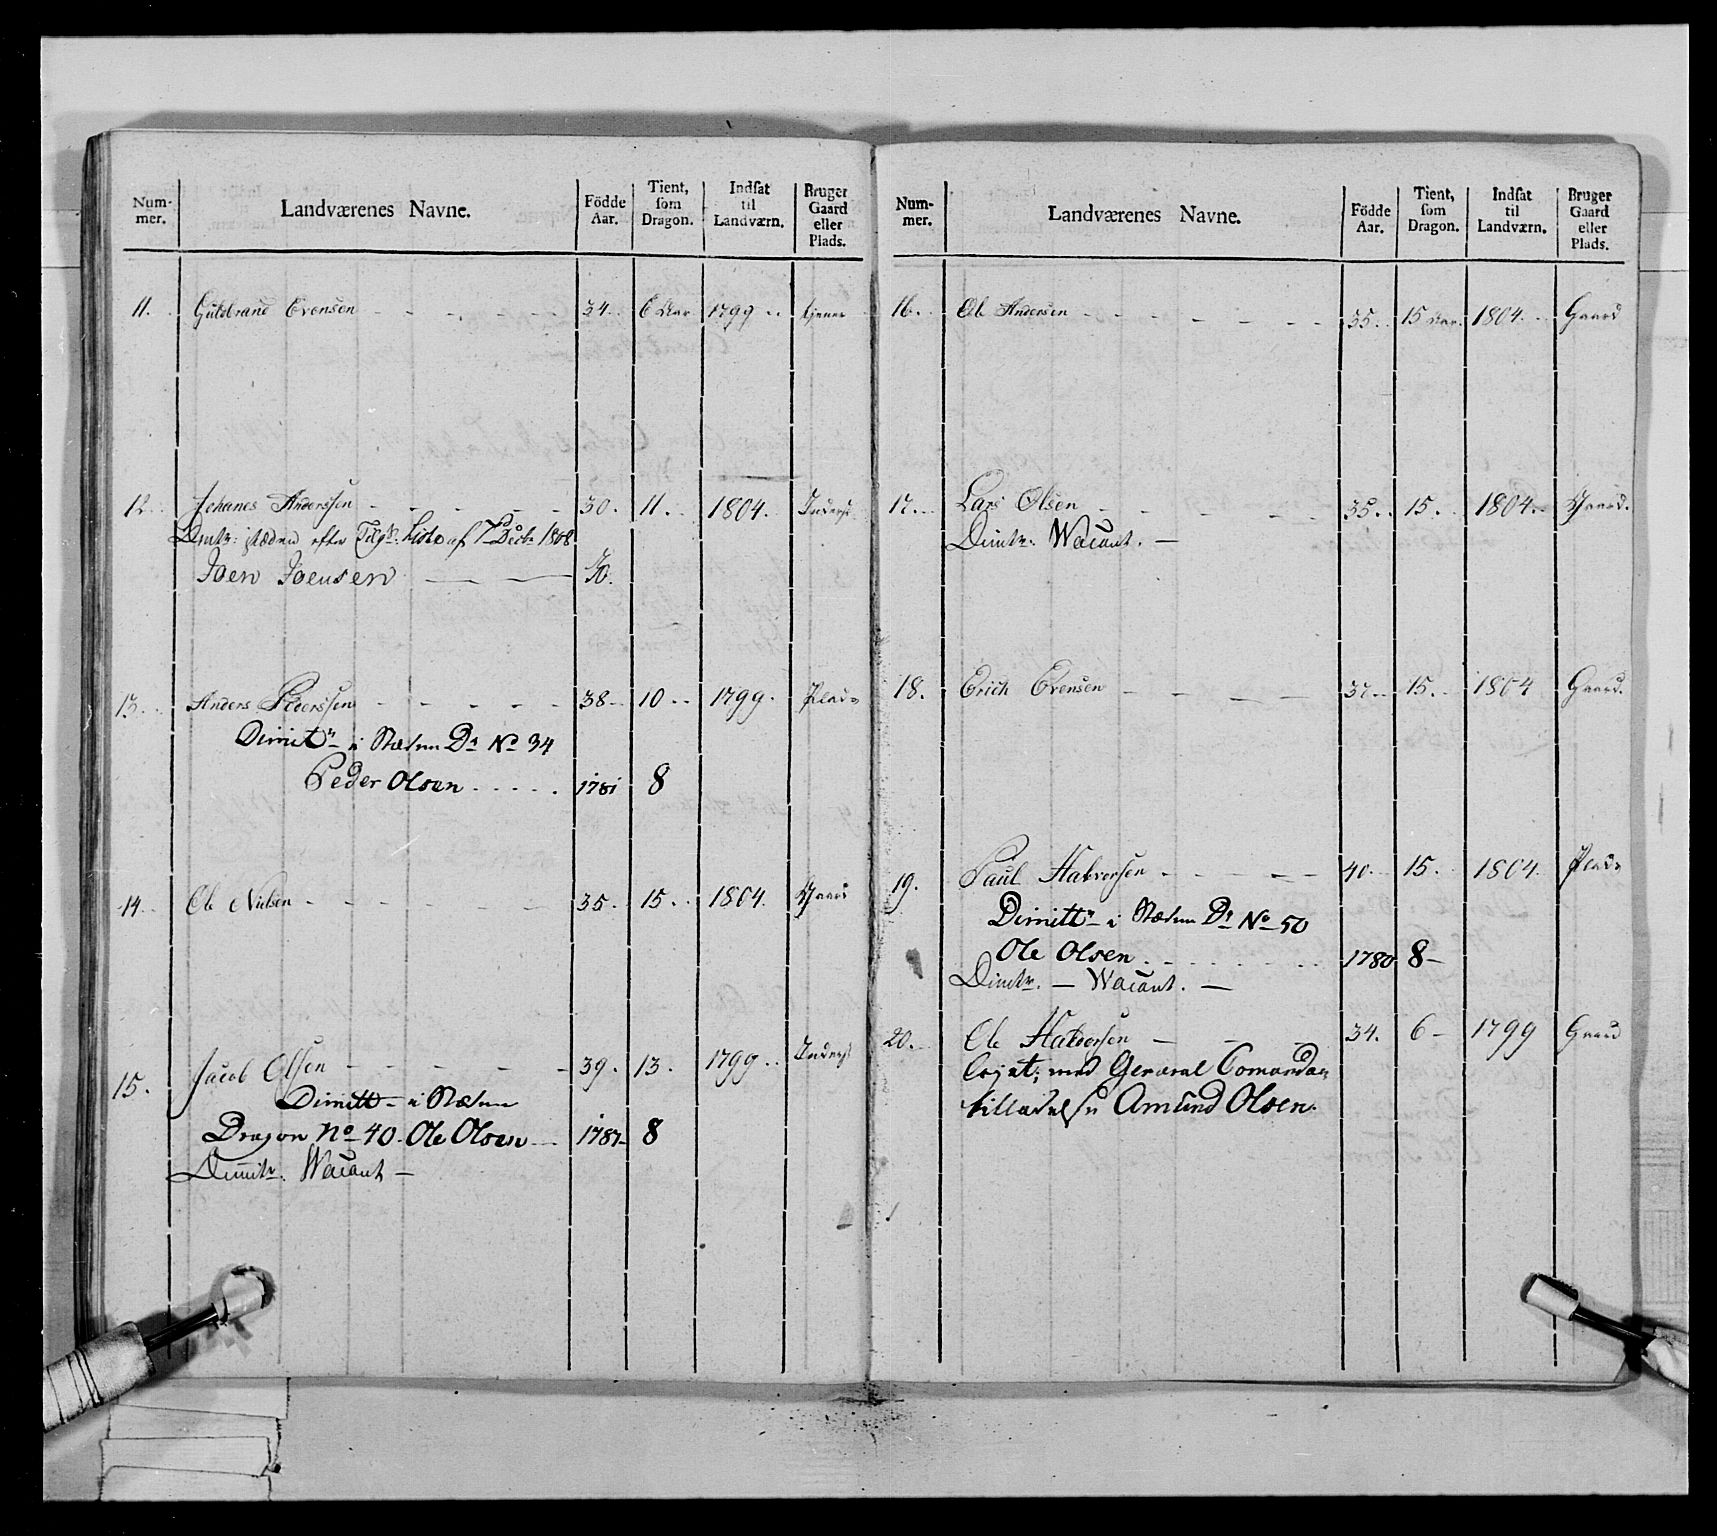 Num-
mer.
Landværenes Navne.
Födde
Aar.
Tient,
som
Dragon.
Indsat
til
Landværn.
Bruger
Gaard
eller
Plads.
11. Guldbrand Evensen 34. 6 Aar 1799 tjener
12. Johanes Anderssen 30. 11. 1804. Inderst
Dimtr: istæden efter Liste af 7de Decbr 1808
Joen Joensen
13. Anders Pederssen 38 10 1799. Plads
Dimitr i Stæden Dr No 34
Peder Olsen 1781 8
14. Ole Nielsen 35. 15. 1804. Gaard
15. Jacob Olsen 39. 13. 1799 Inderst
Dimitt i Stæden
Dragon No 40. Ole Olsen 1787 8
Dimitr. Wacant
Num-
mer.
Landværenes Navne.
Födde
Aar.
Tient,
som
Dragon.
Indsat
til
Landværn.
Bruger
Gaard
eller
Plads.
16. Ole Andersen 35. 15 Aar. 1804. Gaard
17. Lars Olsen 35. 15. 1804. Gaard.
Dimtr. Wacant.
18. Erich Evensen 15. 1804 Gaard.
19. Paul Halvorsen 40. 15. 1804. Plads
Dimittr i Stæden Dr No 50
Ole Olsen 1780 8
Dimtr. Wacant.
20. Ole Halvorsen 34. 6 1799 Gaard
med General Comando
tilladelse Amund Olsen.